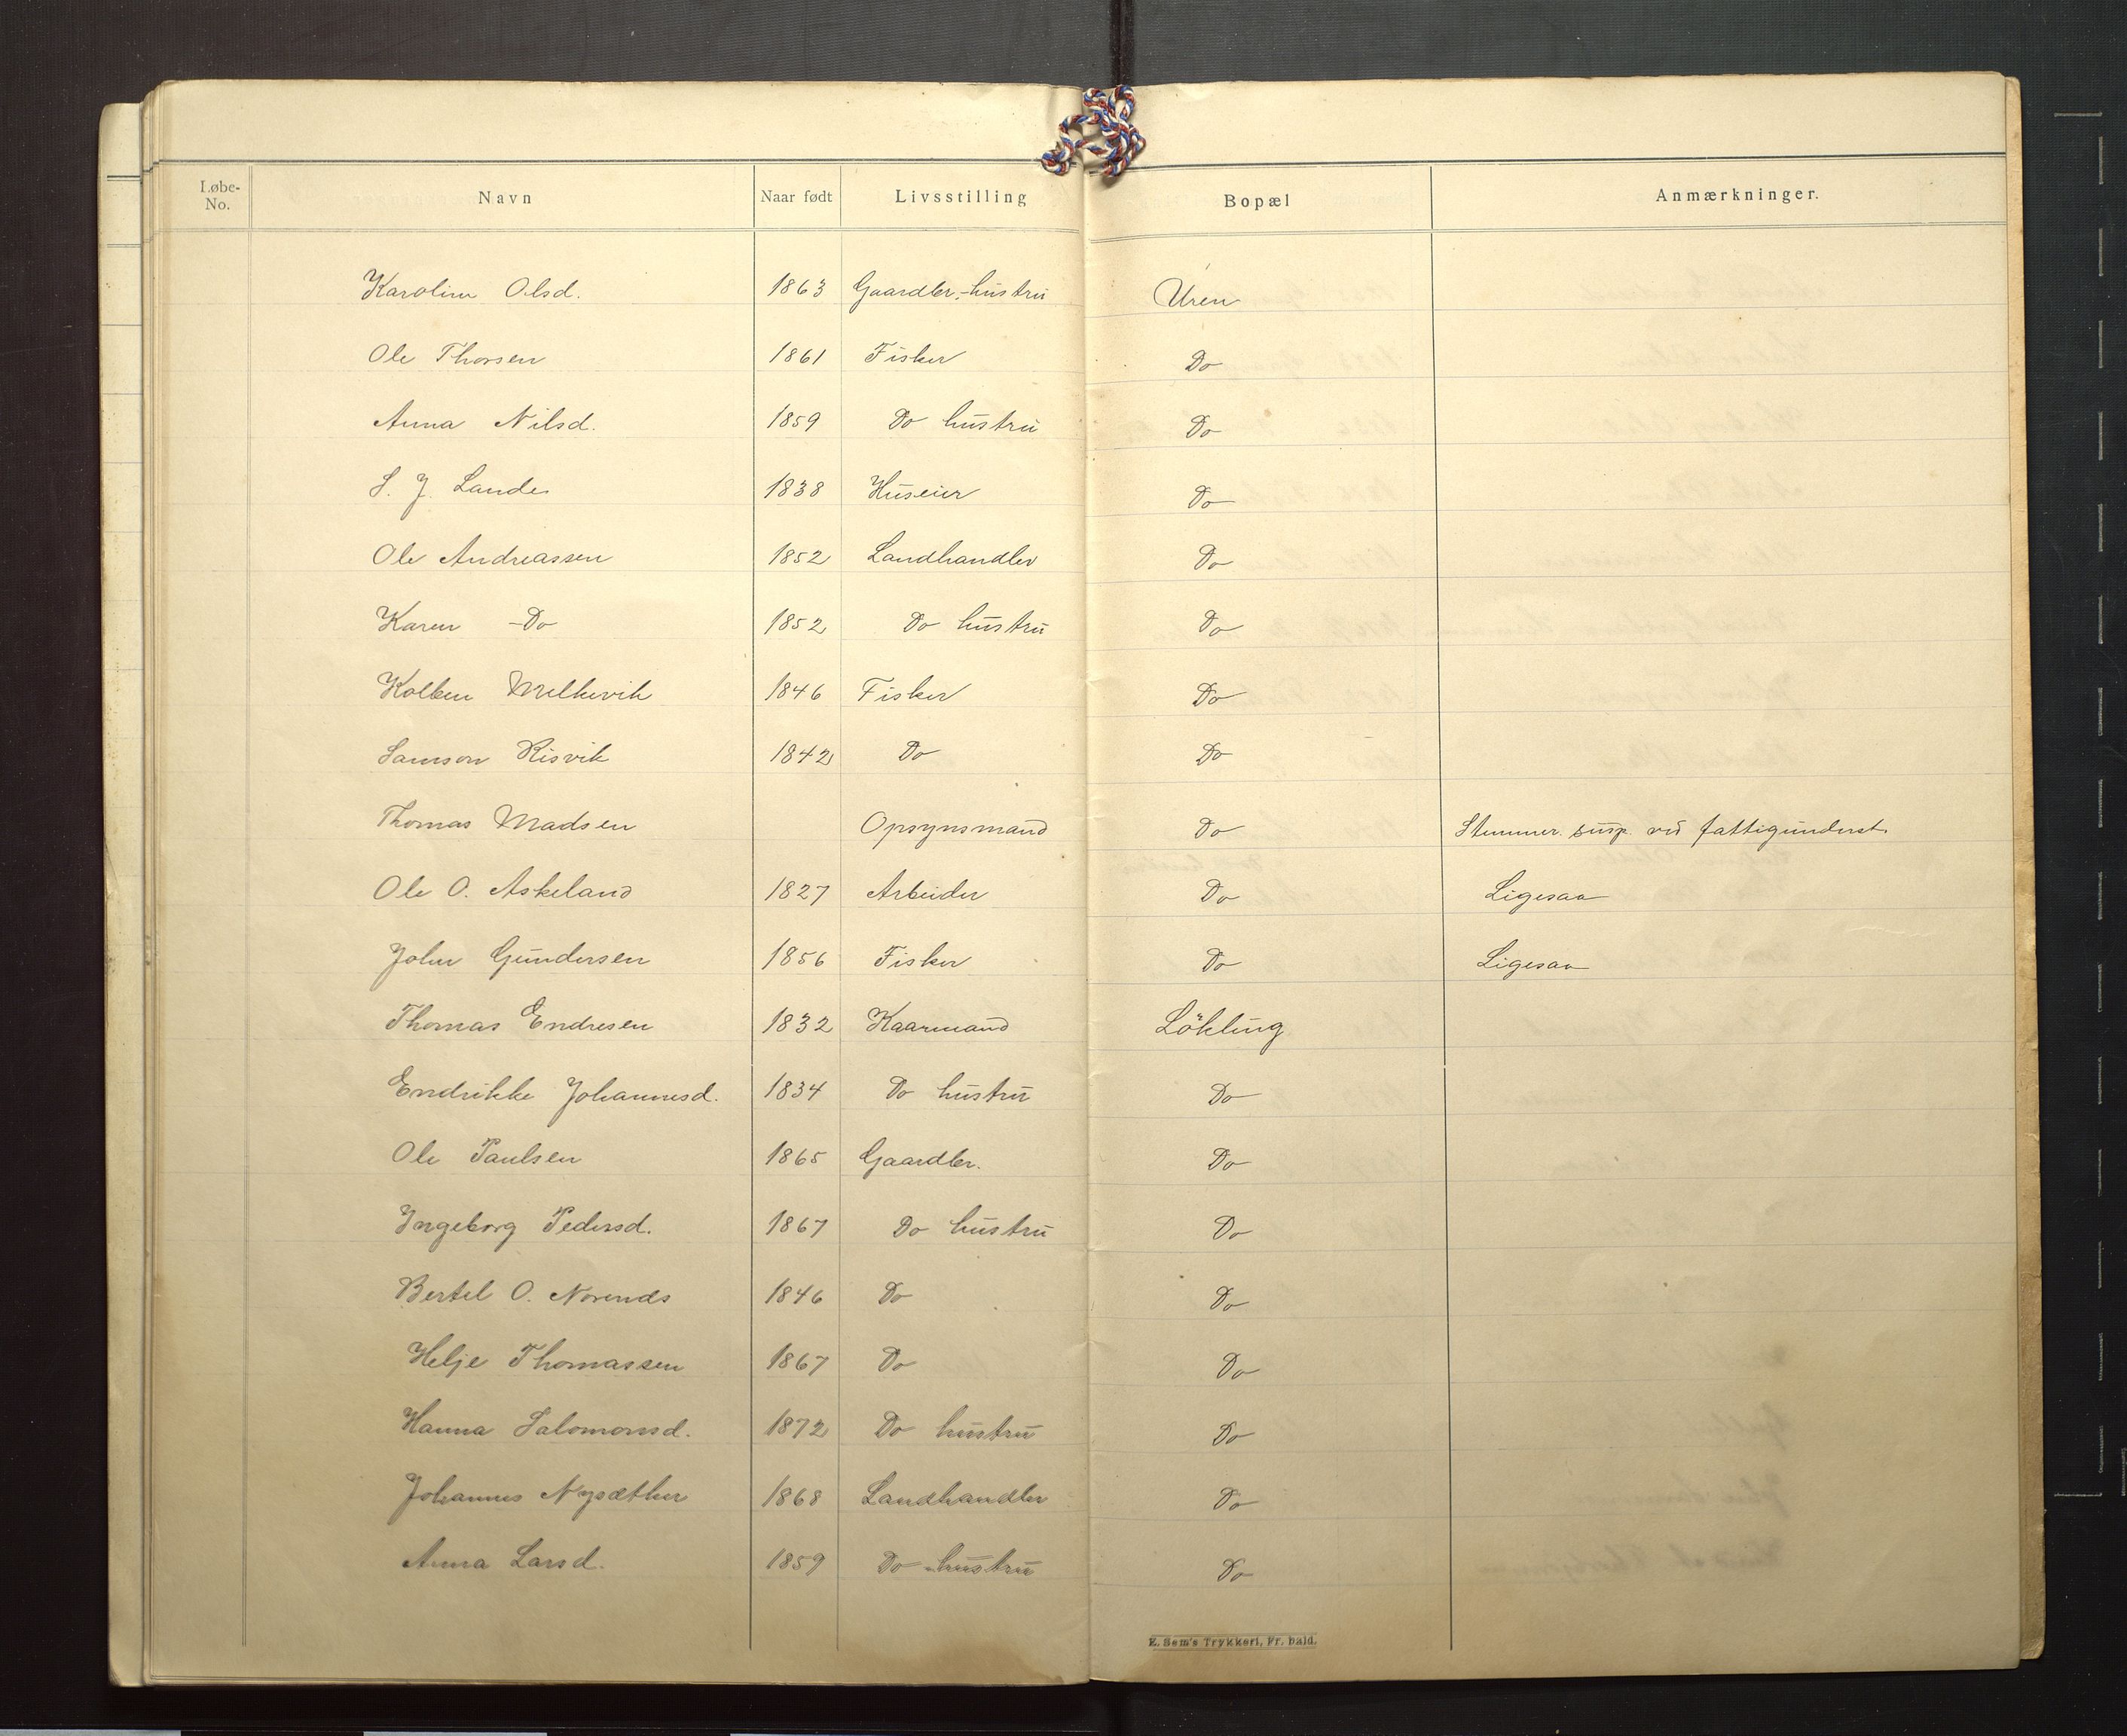 Løbe-No. Navn Naar født Livsstilling Bopæl Anmærkninger.
Karoline Olsd. 1863 Gaardbr.-hustru Uren
Ole Thorsen 1861 Fisker Do
Anna Nilsd. 1859 Do hustru Do
S. J. Lande 1838 Huseier Do
Ole Andreassen 1852 Landhandler Do
Karen Do 1852 Do hustru Do
Kolben Melkevik 1846 Fisker Do
Samson Risvik 1842 Do Do
Thomas Madsen Opsynsmand Do Stemmer. susp. ved fattigunderst.
Ole O. Askeland 1827 Arbeider Do Ligesaa
John Gundersen 1856 Fisker Do Ligesaa
Thomas Endresen 1832 Kaarmand Lökling
Endrikke Johannesd. 1834 Do hustru Do
Ole Paulsen 1865 Gaardbr. Do
Ingeborg Pedersd. 1867 Do hustru Do
Bertel O. 1846 Do Do
Helje Thomassen 1867 Do Do
Hanna Salomonsd. 1872 Do hustru Do
Johannes Nysæther 1868 Landhandler Do
Anna Larsd. 1859 Do hustru Do
E. Sem's Trykkeri, Fr.hald.